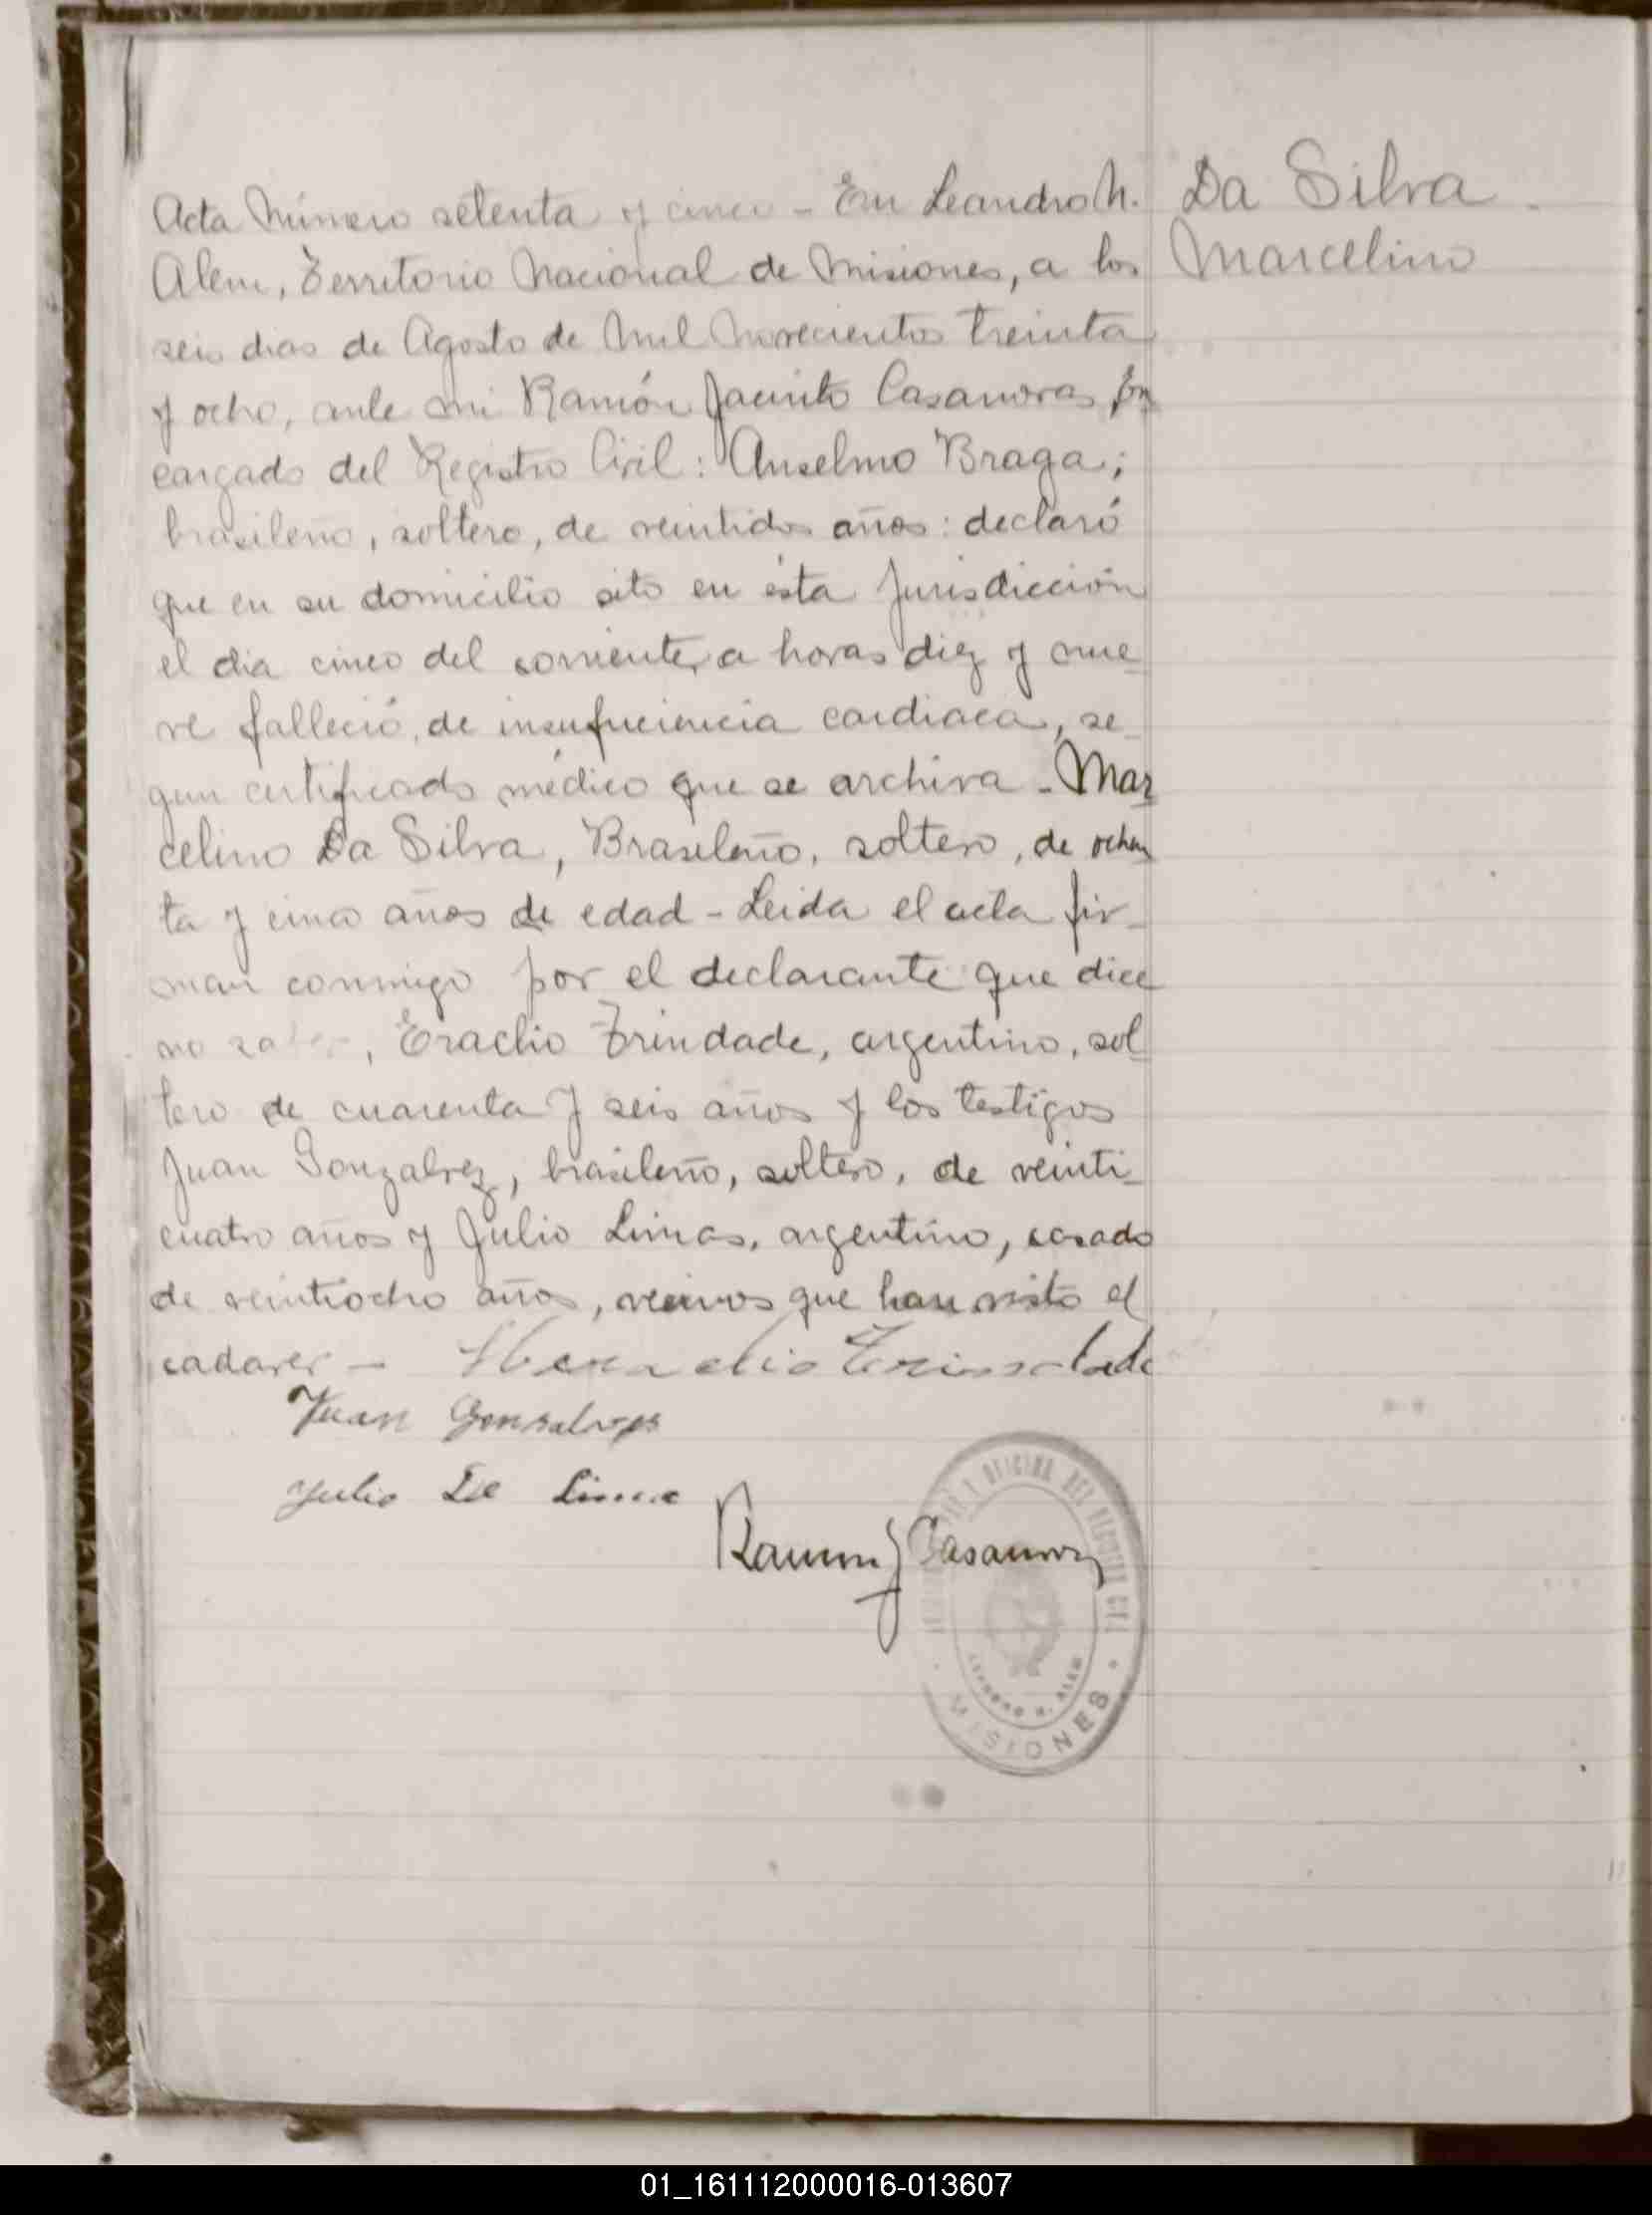 Acta Número setenta y cinco - En Leandro N.
Alem, Territorio Nacional de Misiones, a los
seis dias de Agosto de Mil Novecientos treinta
y ocho, ante mi Ramón Jacinto Casanovas En
cargado del Registro Civil: Anselmo Braga;
brasileño, soltero, de veintidos años: declaró
que en su domicilio sito en ésta Jurisdicción
el dia cinco del corriente, a horas diez y nue
ve falleció, de insuficiencia cardiaca, se
gun certificado médico que se archiva - Mar
celino Da Silva, Brasileño, soltero, de ochen
ta y cinco años de edad - Leida el acta fir-
man conmigo por el declarante que dice
no saber, Eraclio Trindade, argentino, sol
tero de cuarenta y seis años y los testigos
Juan Gonzalvez, brasileño, soltero, de veinti
cuatro años y Julio Limas, argentino, casado
de veintiocho años, vecinos que han visto el
cadaver -
Juan Gonsalves
Julio De Lima
Ramon J Casanovas
Da Silva
Marcelino
OFICINA DEL REGISTRO CIVIL
LEANDRO N. ALEM
MISIONES
01_161112000016-013607